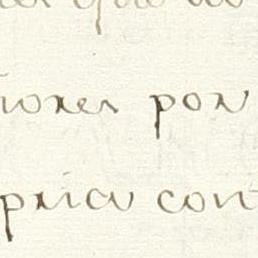 iones por
pria con